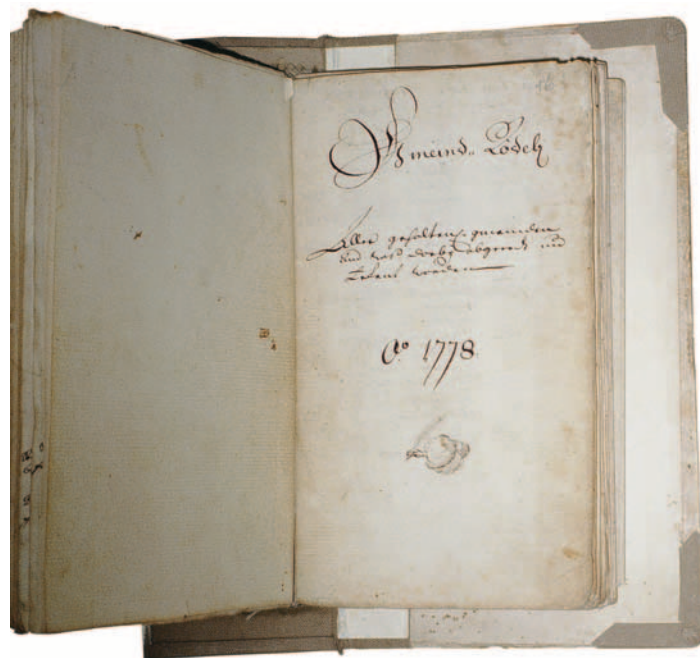 Gmeind- Rödel
Aller gehaltenen gmeinden
und was darby abgeredt und
worden
Ao 1778